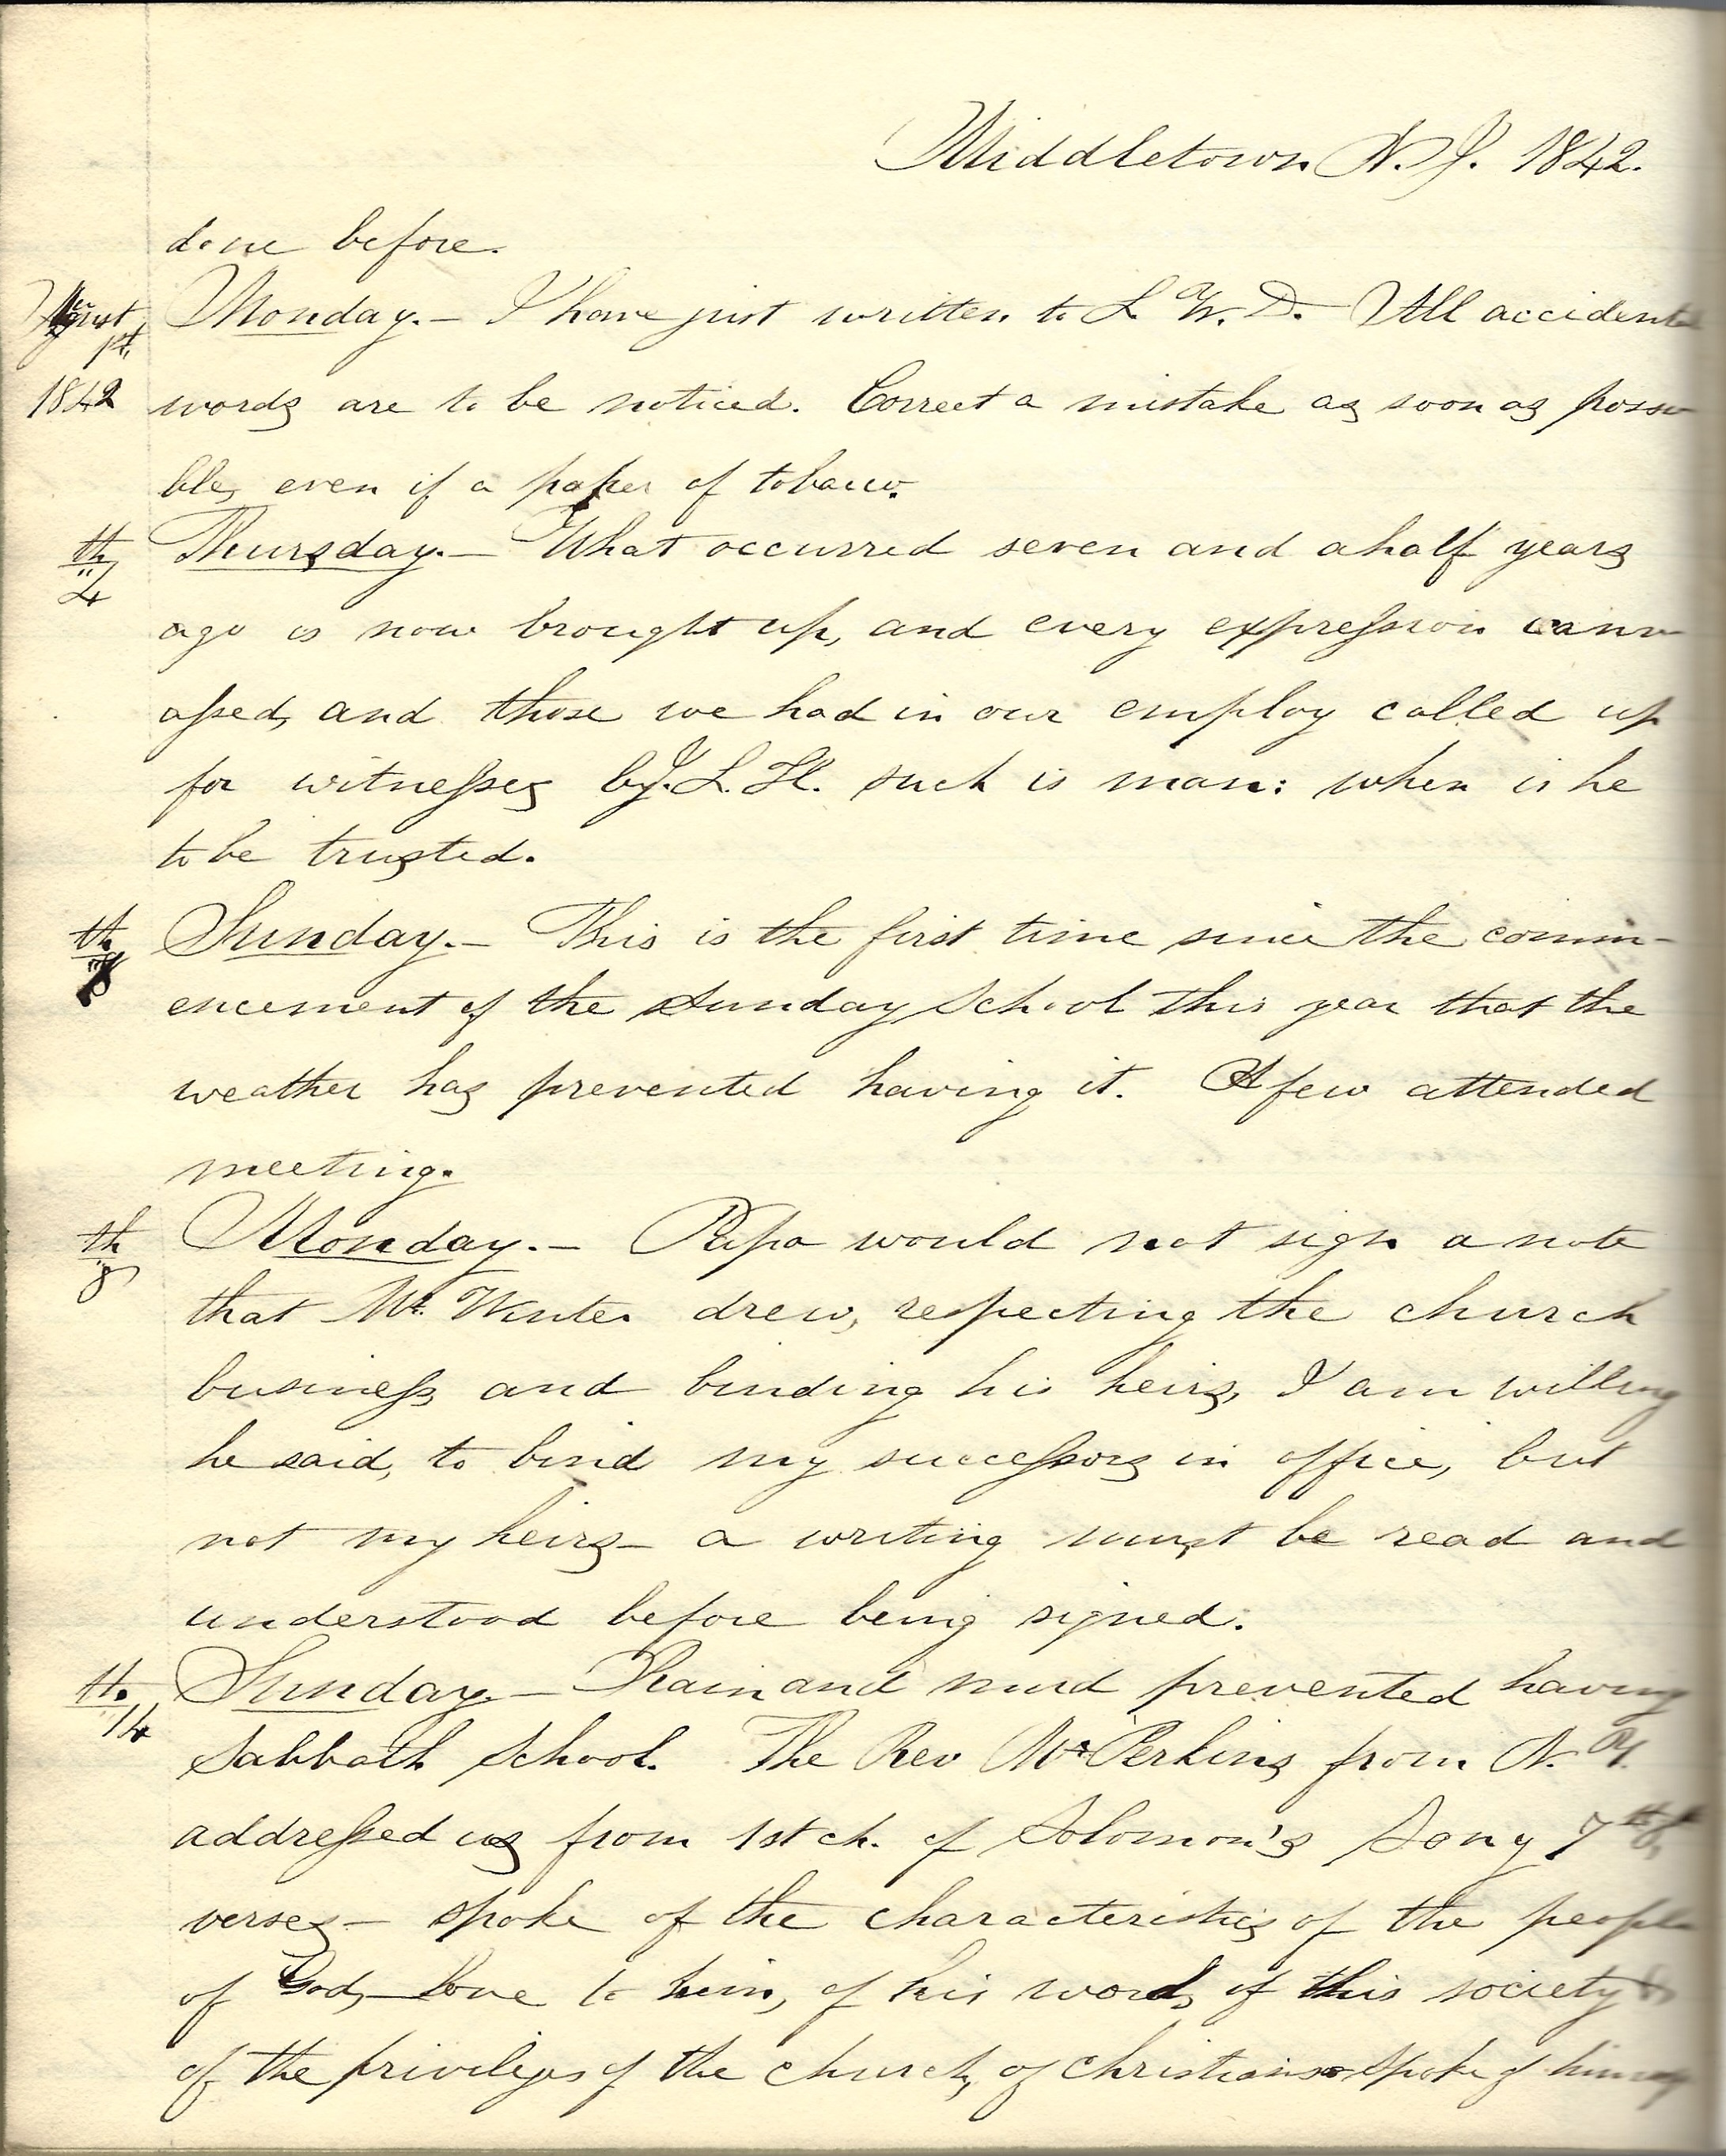 Middletown N. J. 1842.
done before.
August Monday.— I have just written to L. W. D. All accidental
1st.
1842 words are to be noticed. Correct a mistake as soon as possi
ble, even if a paper of tobacco.
th 4 Thursday.— What occurred seven and a half years
ago is now brought up, and every expression canv
assed, and those we had in our employ called up
for witnesses by J. L. H. such is man: when is he
to be trusted.
th 7 Sunday.— This is the first time since the comm-
encement of the Sunday School this year that the
weather has prevented having it. A few attended
meeting.
th 8 Monday.— Papa would not sign a note
that Mr. Winter drew, respecting the church
business and binding his heirs, I am willing
he said, to bind my successors in office, but
not my heirs— a writing must be read and
understood before being signed.
th 14 Sunday.— Rain and mud prevented having
Sabbath School. The Rev Mr Perkins from N. Y.
addressed us from 1st ch. of Solomon's Song 7th 8,
verses— spoke of the characteristics of the people
of God,— Love to him, of his word, of this society &
of the privileges of the church, of christians— spoke of